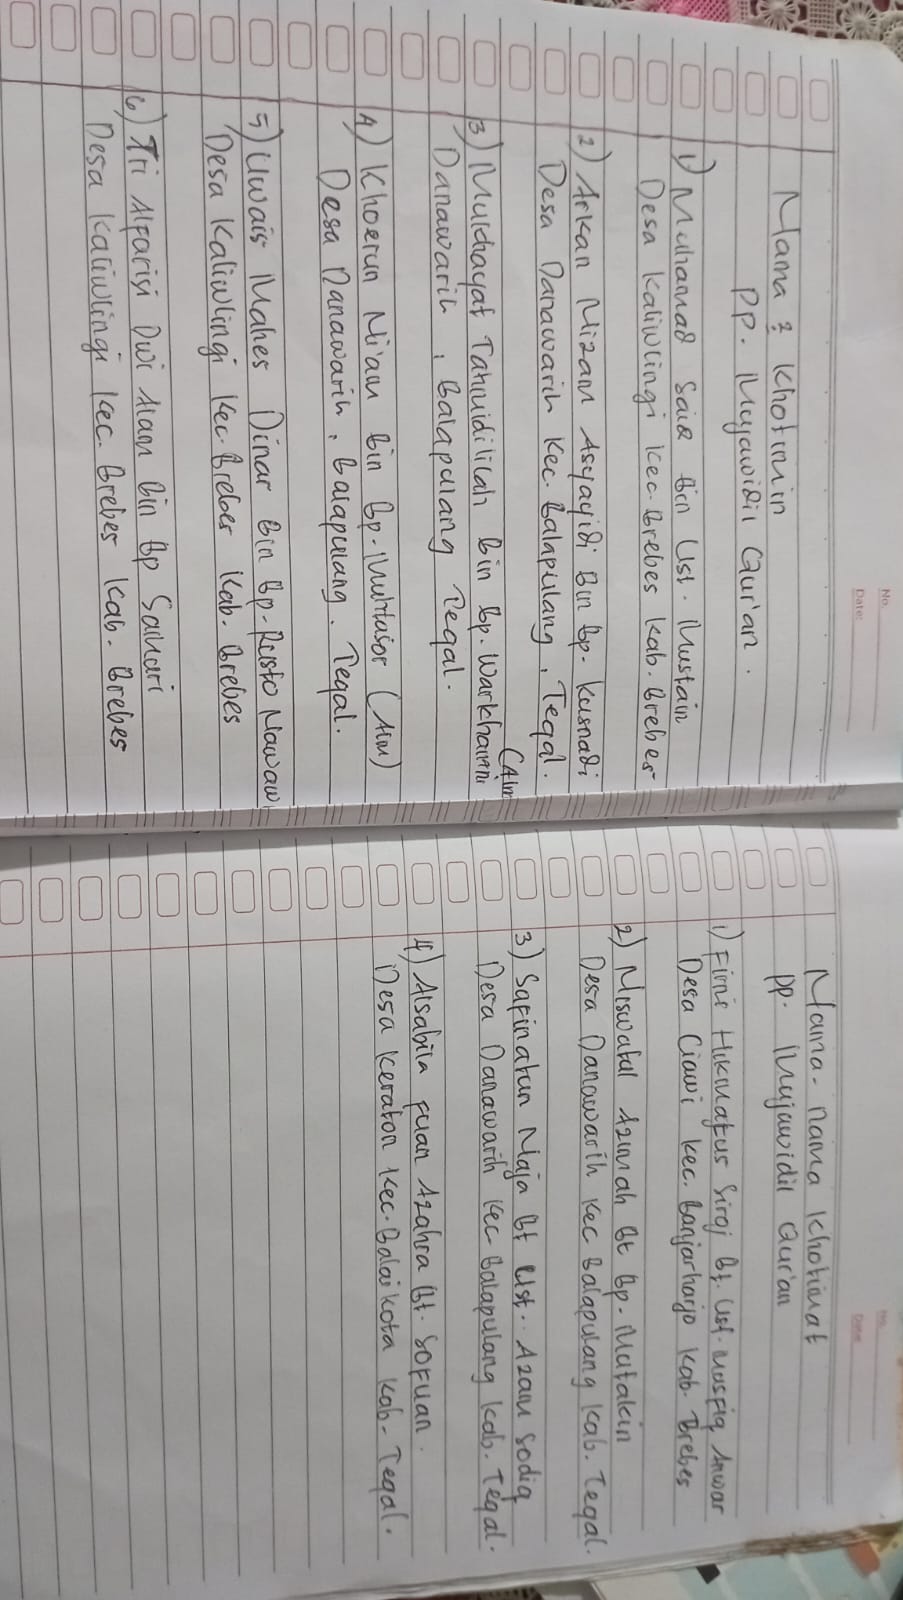 No.
Date:
Nama 2 Khotimin
PP. Mujawidil Qur'an.
1) Muhammad Said Bin Ust. Mustain
Desa Kaliwlingi Kec. Brebes Kab. Brebes
2) Arkan Nizam Asyayidi Bin Bp. Kusnadi
Desa Danawarih Kec. Balapulang, Tegal.
3) Mulkhayat Tahmidillah Bin Bp. Warkhamni (Alm
Danawarih, Balapulang Tegal.
4) Khoerun Ni'am bin Bp. Muhtasor (Alm)
Desa Danawarih, Balapulang. Tegal.
5) Uwais Mahes Dinar Bin Bp. Risto Nawaw
Desa Kaliwlingi Kec. Brebes Kab. Brebes
6) Tri Alfarisi Dwi Alam Bin Bp Saihari
Desa Kaliwlingi Kec. Brebes Kab. Brebes
No.
Date:
Nama-nama Khotimat
PP. Mujawidil Qur'an
1) Firni Hikmatus Siroj Bt. Ust. Musfiq Anwar
Desa Ciawi Kec. Banjarharjo Kab. Brebes
2) Miswatul Azimah Bt Bp. Mutakin
Desa Danawarih Kec Balapulang Kab. Tegal.
3) Safinatun Naja Bt Ust. Azam Sodiq
Desa Danawarih Kec Balapulang Kab. Tegal.
4) Alsabila Fuan Azahra Bt. Sofuan.
Desa Keraton Kec. Balaikota Kab. Tegal.